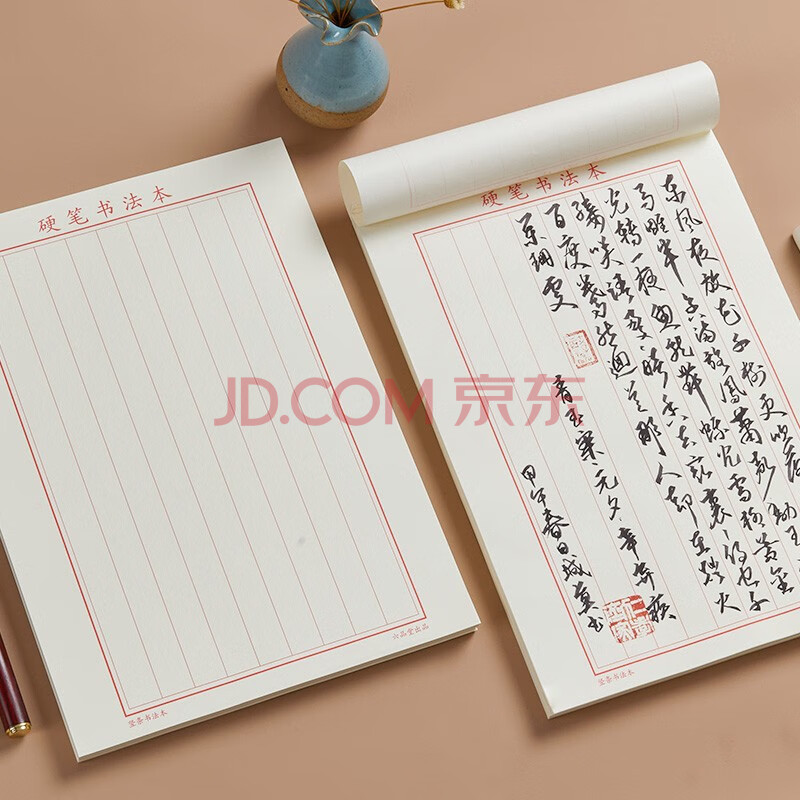 硬笔书法本
六品堂出品
竖条书法本
硬笔书法本
东风夜放花千树更吹落
马雕车香满路凤箫声动玉
光转一夜鱼龙舞蛾儿雪柳黄金
缕笑语盈盈暗香去众里寻他千
百度蓦然迴首那人却在灯火
阑珊处
青玉案·元夕·辛弃疾
甲午春日城书
竖条书法本
JD.COM 京东